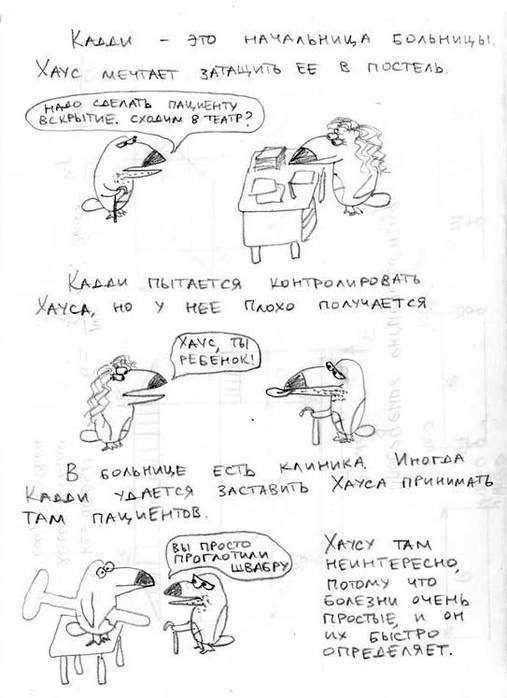 КАДДИ – ЭТО НАЧАЛЬНИЦА БОЛЬНИЦЫ.
ХАУС МЕЧТАЕТ ЗАТАЩИТЬ ЕЕ В ПОСТЕЛЬ.
НАДО СДЕЛАТЬ ПАЦИЕНТУ
ВСКРЫТИЕ. СХОДИМ В ТЕАТР?
КАДДИ ПЫТАЕТСЯ КОНТРОЛИРОВАТЬ
ХАУСА, НО У НЕЕ ПЛОХО ПОЛУЧАЕТСЯ.
ХАУС, ТЫ
РЕБЕНОК!
В БОЛЬНИЦЕ ЕСТЬ КЛИНИКА. ИНОГДА
КАДДИ УДАЕТСЯ ЗАСТАВИТЬ ХАУСА ПРИНИМАТЬ
ТАМ ПАЦИЕНТОВ.
ВЫ ПРОСТО
ПРОГЛОТИЛИ
ШВАБРУ
ХАУСУ ТАМ
НЕИНТЕРЕСНО,
ПОТОМУ ЧТО
БОЛЕЗНИ ОЧЕНЬ
ПРОСТЫЕ, И ОН
ИХ БЫСТРО
ОПРЕДЕЛЯЕТ.